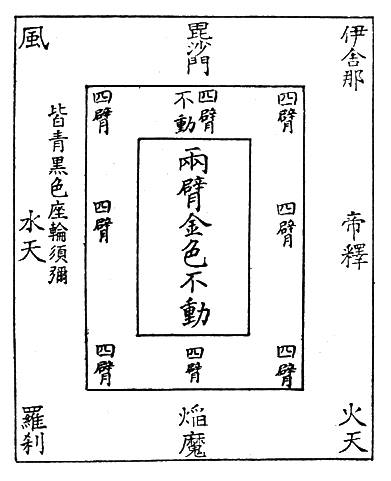 伊舍那
毘沙門
風
帝釋
水天
皆青黑色座輪須彌
火天
焔魔
羅刹
四臂
四臂
不動
四臂
四臂
四臂
四臂
四臂
四臂
兩臂金色不動